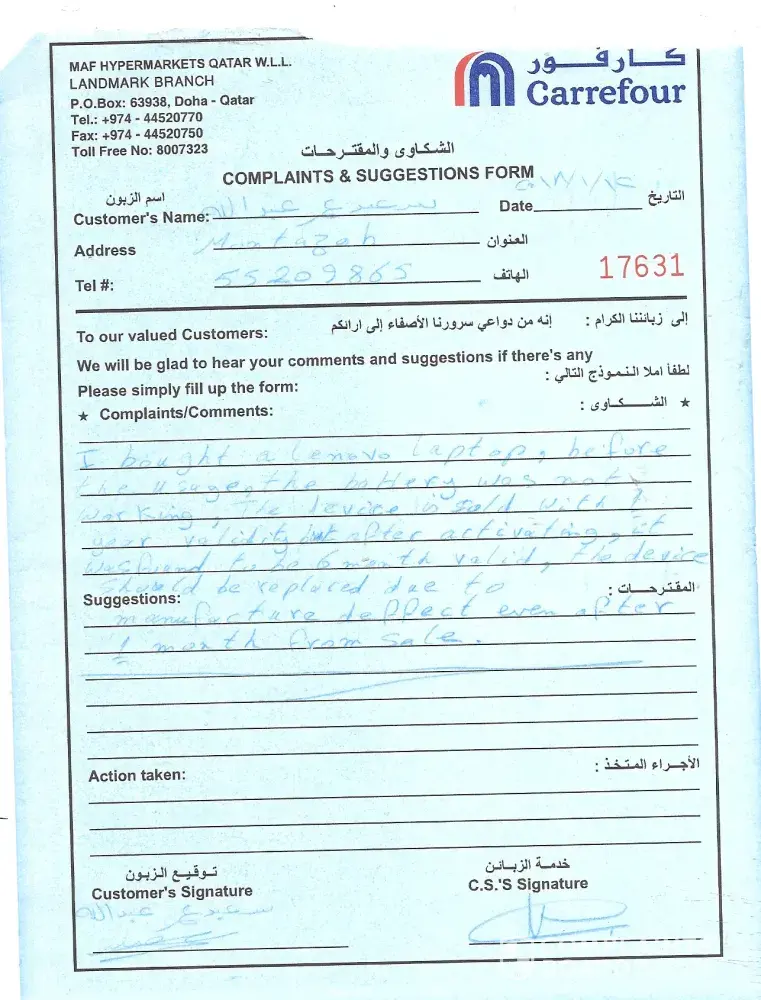 MAF HYPERMARKETS QATAR W.L.L.
LANDMARK BRANCH
P.O.Box: 63938, Doha - Qatar
Tel.: +974 - 44520770
Fax: +974 - 44520750
Toll Free No: 8007323
كارفور
Carrefour
الشكاوى والمقترحات
COMPLAINTS & SUGGESTIONS FORM
اسم الزبون
Customer's Name: عبدالله
Date التاريخ
Address Muntazah العنوان
Tel #: 55209865 الهاتف
17631
إلى زبائننا الكرام : إنه من دواعي سرورنا الأصفاء إلى ارائكم
To our valued Customers:
We will be glad to hear your comments and suggestions if there's any
لطفاً املا النموذج التالي :
Please simply fill up the form:
★ Complaints/Comments: ★ الشكاوى :
I bought a Lenovo laptop, before
the usage the battery was not
working, The device is sold with 1
year validity but after activating, it
was found to be 6 month valid, The device
should be replaced due to
Suggestions: المقترحات :
manufacture deffect even after
1 month from sale.
Action taken: الأجراء المتخذ :
توقيع الزبون
Customer's Signature
خدمة الزبائن
C.S.'S Signature
عبدالله